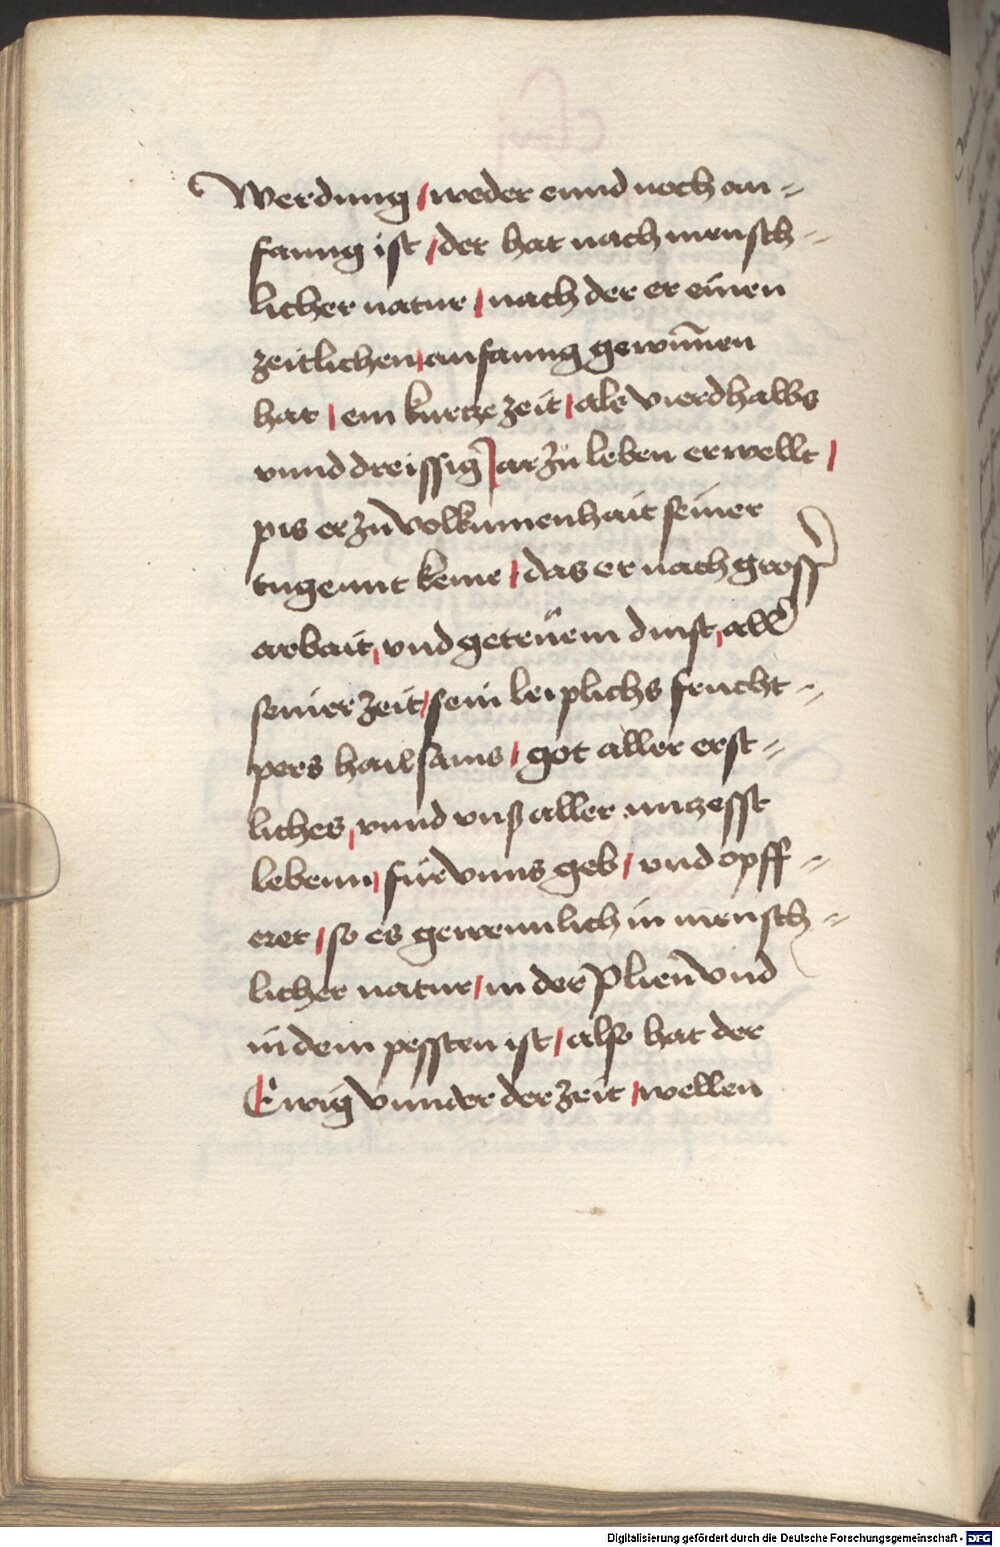 Werdung / weder ennd noch an=
fanng ist / der hat nach mensch=
licher natur / nach der er einen
zeitlichen / anfanng gewūnen
hat / ein kurtze zeit / als vierdhalbs
vnnd dreissig Jar zu leben erwellt /
pis er zu volkumenhait seiner
tugennt keme / das er nach grosser
arbait / vnd getreuem dinst / aller
seiner zeit / sein leiplichs frucht=
pers hailsams / got aller erst=
liches / vnnd vnß aller nutzesst
lebenn / für vnns geb / vnd opff=
eret / so es gewennlich in mensch=
licher natur / in der Plien vnd
in dem pessten ist / also hat der
Ewig vnnder der zeit / wellen
Digitalisierung gefördert durch die Deutsche Forschungsgemeinschaft - DFG